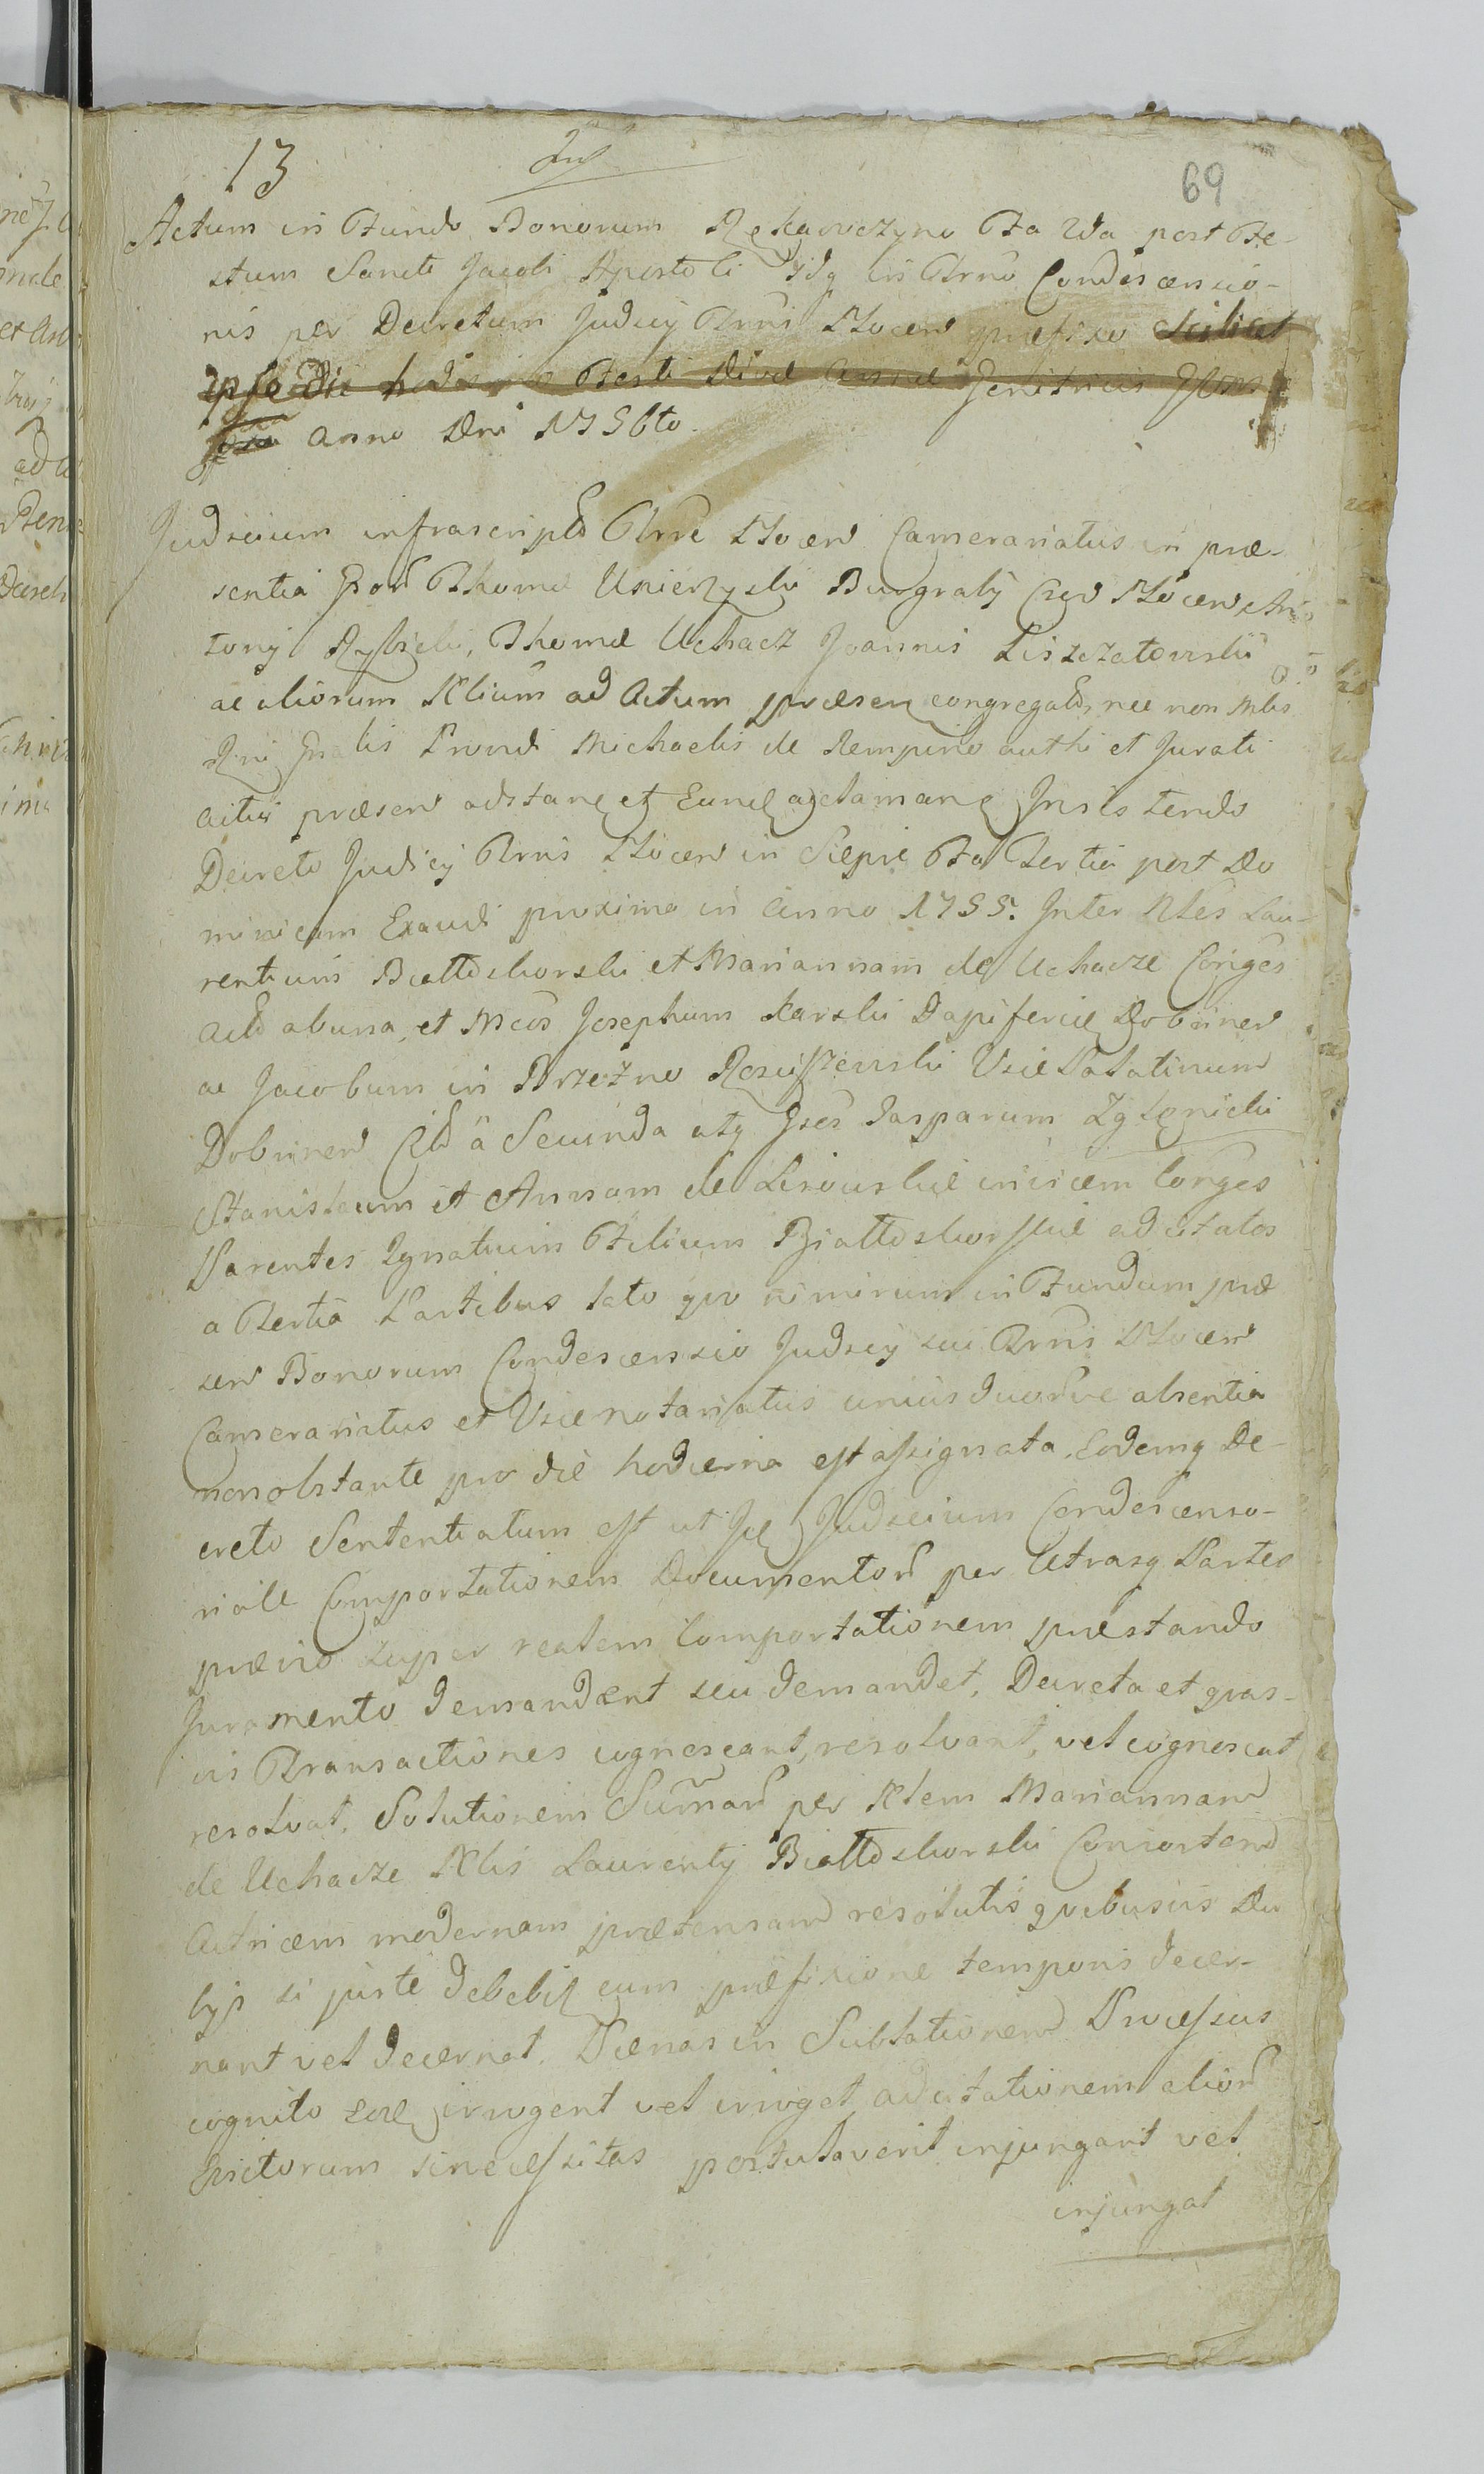 13
69
Actum in Fundo Bonorum Rękawczyno Fa 2da post Fe-
stum Sancti Jacobi Apostoli Idq in Trno Condescensio-
nis per Decretum Judicij Trris Plocen præfixo scilicet
ipso die hodierno Festi Divæ Annæ Genitricis
Anno Dni 1756to.
Judicium infrascript Trre Plocen Camerariatus in præ-
sentia Thomæ Unierzyski Burgrabij Plocen An-
tonij Rybicki, Thomæ Uchacz Joannis Liszczatowski
ac aliorum Nlium ad Actum præsen congregat, nec non Mlis
Rni Prondi Michaelis de Rempino authi et Jurati
Actui præsen adstan et Eund acclaman Insistendo
Decreto Judicij Trris Plocen in Sierpie Fa Tertia post Do
minicam Exaudi proxima in Anno 1755. Inter Nles Lau-
rentium Białłoskorski et Mariannam de Uchacze Conges
ab una, et Mcos Josephum Karski Dapiferum Dobrinen
ac Jacobum in Brzezno Rosciszewski Vice Palatinum
Dobrinen à Secunda atq Gsos Gasparum Zglenicki
Stanislaum et Annam de Lisowskie invicem Conges
Parentes Ignatium Filium Białłoskorskie adcitatos
a Tertia Partibus lato quo nimirum in Fundum præ
sen Bonorum Condescensio Judicij sui Trris Plocen
Camerariatus et Vice notariatus unius duorve absentia
non obstante pro die hodierna est assignata. Eodemq De-
creto Sententiatum est ut Judicium Condescenso-
riale Comportationem Documentor per Utrasq Partes
prævio super realem Comportationem præstando
Juramento demandent seu demandet, Decreta et quas-
vis Transactiones cognoscant, resolvant, vel cognoscat
resolvat. Solutionem Sumar per Nlem Mariannam
de Uchacze Nlis Laurentij Białłoskorski Consortem
Actricem modernam prætensam resolutis quibusvis Du
bijs si juste debebit cum præfixione temporis decer-
nant vel decernat. Pænas in Sublationem Processus
cognito irrogent vel irroget, adcitationem alior
Evictorum si necessitas postulaverit injungant vel
injungat